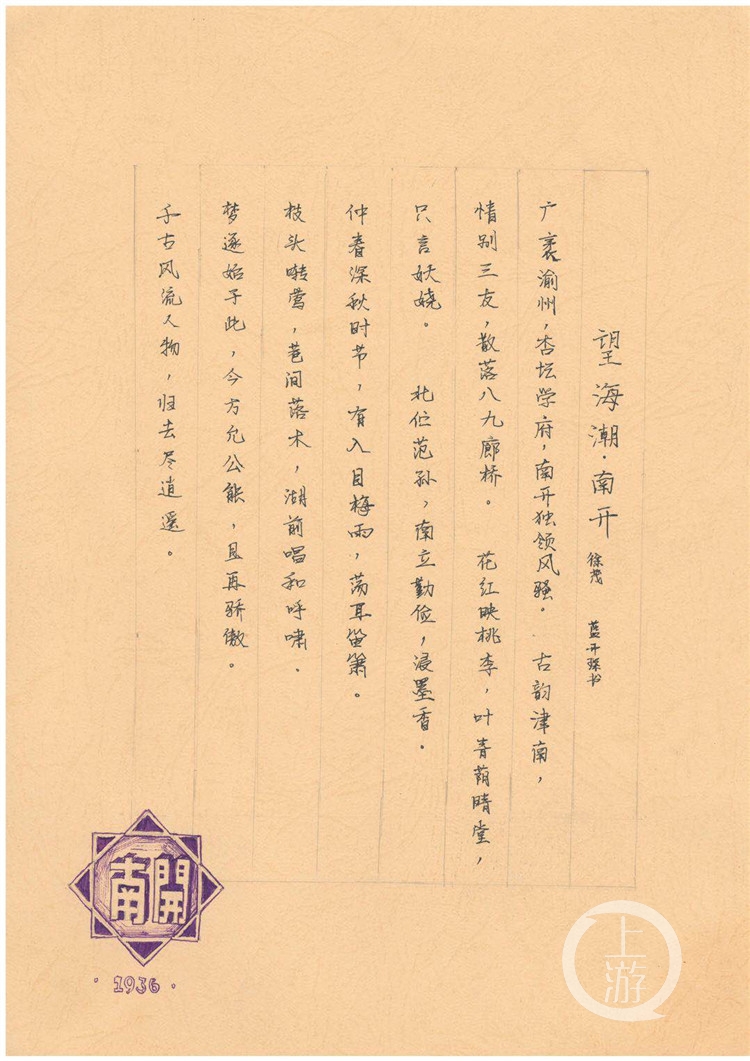 望海潮·南开
徐茂 蓝开琛书
广袤渝州，杏坛学府，南开独领风骚。 古韵津南，
情别三友，散落八九廊桥。 花红映桃李，叶青荫晴堂，
只言妖娆。 北伫范孙，南立勤俭，浸墨香。
仲春深秋时节，有入目梅雨，荡耳笛箫。
枝头啭莺，苍间落木，湖前唱和呼啸.
梦逐始于此，今方允公能，且再骄傲。
千古风流人物，归去尽逍遥。
南開
·1936·
上游